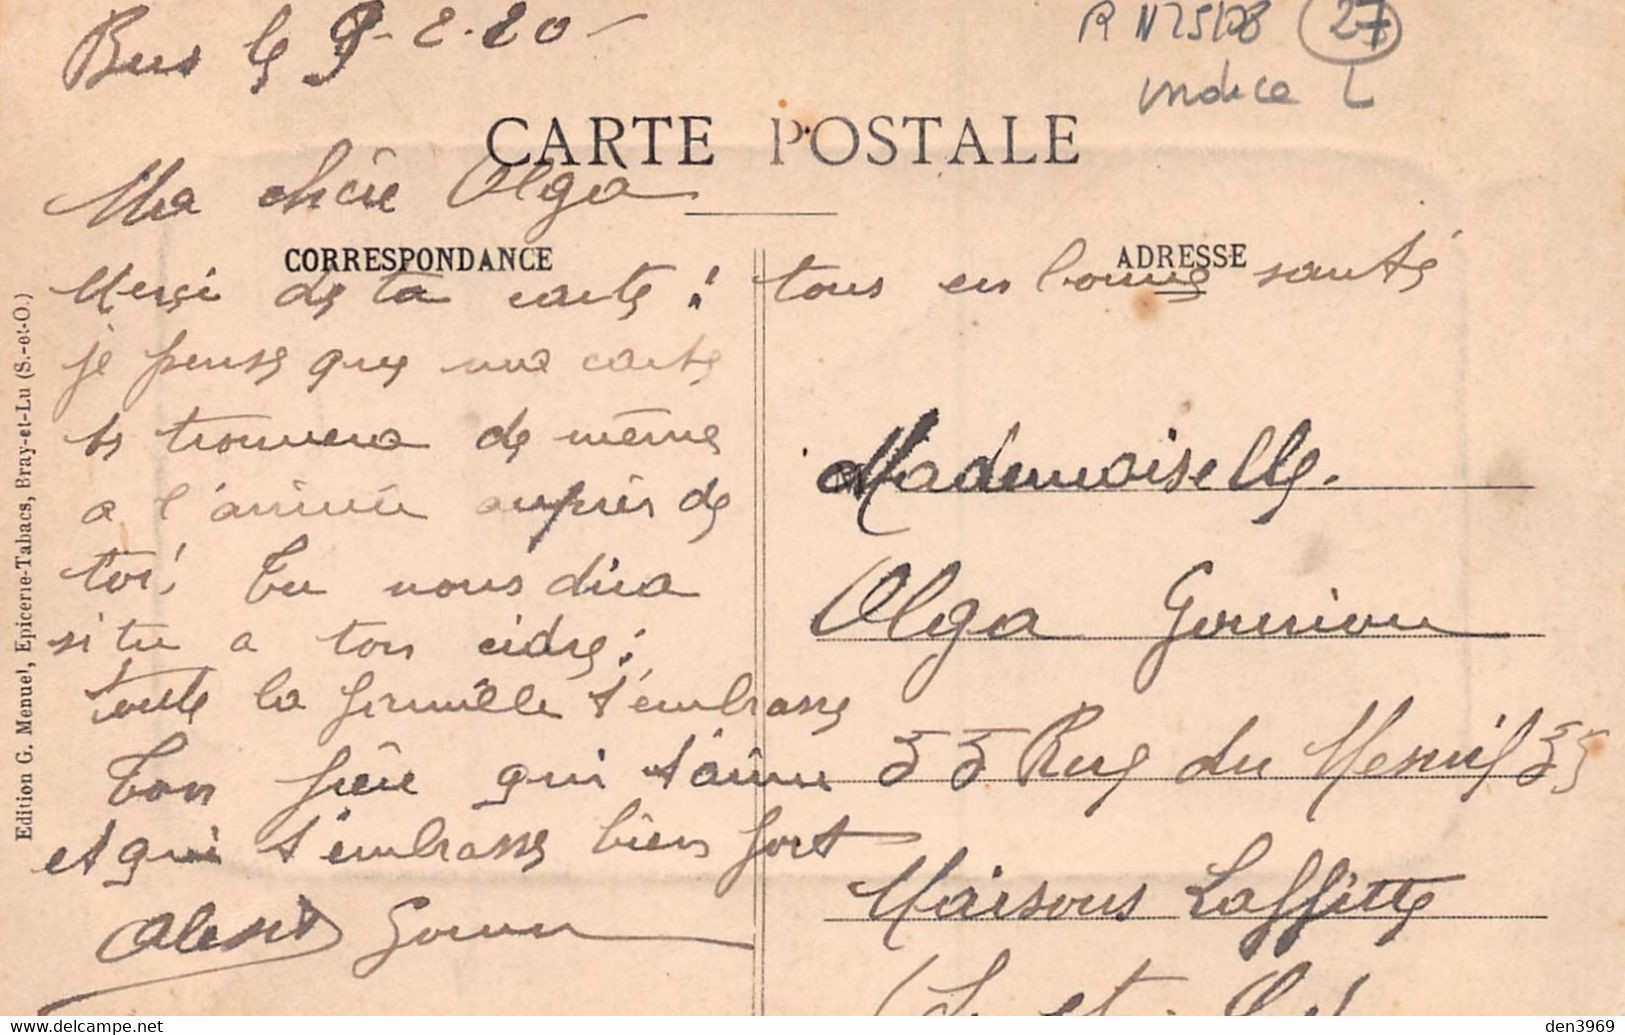 Bus le 9-2-20-
R N25128 27
indice L
CARTE POSTALE
Ma chère Olga
CORRESPONDANCE
ADRESSE
Merci de ta carte! tous en bonne santé
je pense que ma carte
te trouvera de même
a l'arrivée auprès de
toi! Tu nous dira
si tu a ton cidre;
toute la famille t'embrasse
Ton frère qui t'aime
et qui t'embrasse bien fort
Alexis
Mademoiselle.
Olga
55 Rue du Mesnil 55
Maisons Laffitte
(S. et O.)
Edition G. Menuel, Epicerie-Tabacs, Bray-et-Lu (S.-et-O.)
www.delcampe.net
den3969